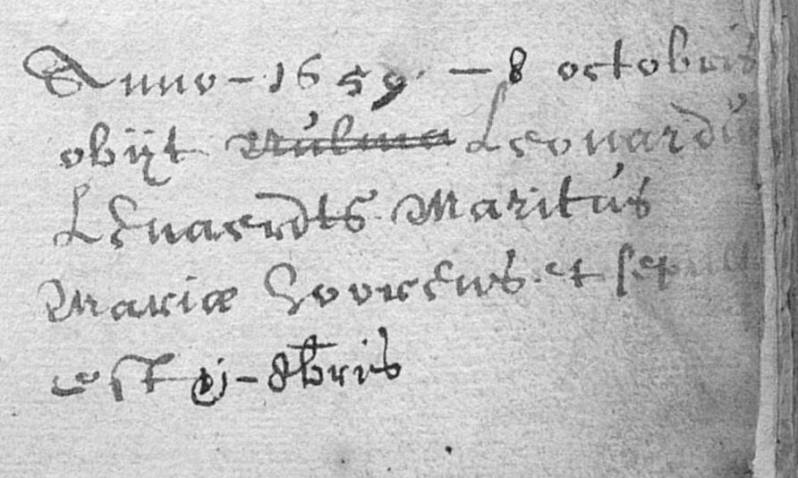 Anno - 1659 - 8 octobris
obijt Leonardus
Lenaerdts Maritus
Mariæ et sepult
est - 8bris